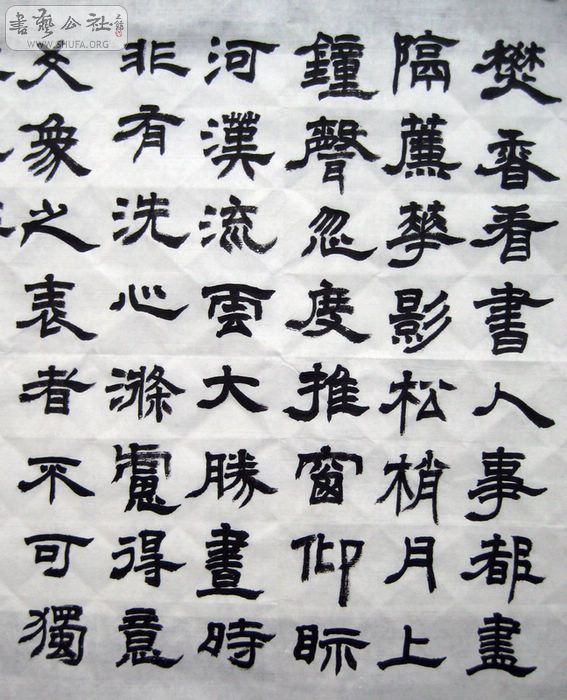 書藝公社
WWW.SHUFA.ORG
焚香看書人事都盡
隔簾華影松梢月上
鐘聲忽度推窗仰眎
河漢流雲大勝晝時
非有洗心滌慮得意
爻象之表者不可獨